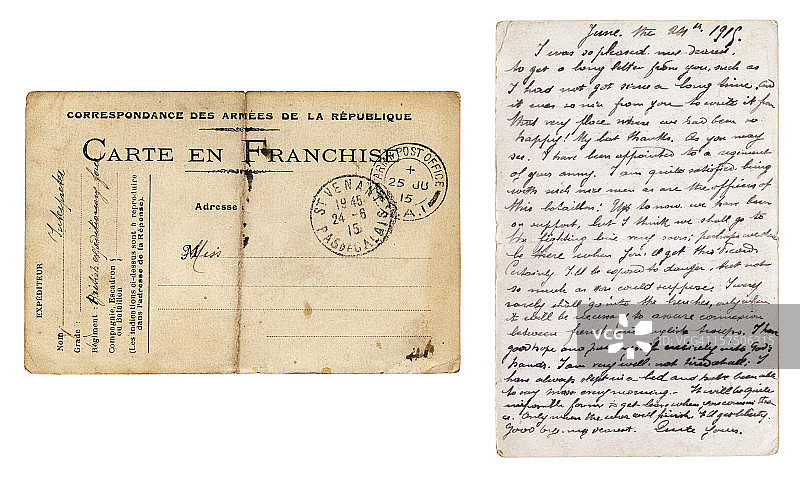 CORRESPONDANCE DES ARMÉES DE LA RÉPUBLIQUE
CARTE EN FRANCHISE
ARMY POST OFFICE
25 JU
15
A.1
ST VENANT
1945
24-6
15
PAS DE CALAIS
Adresse
Miss
EXPÉDITEUR
Nom Interprete
Grade :
Régiment : British expeditionary force
Compagnie, Escadron
ou Bataillon
(Les indications ci-dessus sont à reproduire
dans l'adresse de la Réponse).
June. the 24th 1915.
I was so pleased my dearest,
to get a long letter from you, such as
I had not got since a long time, and
it was so nice from you to write it from
that very place where we had been so
happy! My best thanks. As you may
see. I have been appointed to a regiment
of your army. I am quite satisfied being
with such nice men as are the officers of
this batallion. Up to now we have been
on support, but I think we shall go to
the fighting line very soon; perhaps
be there when you'll get this
Certainly I'll be exposed to danger, but not
so much as you could suppose. I very
rarely shall go into the trenches, only when
it will be necessary to assure connexion
between french and english troops. I have
good hope and put myself entirely into God's
hands. I am very well, not tired at all. I
have always slept in a bed and been able
to say mass every morning. It will be quite
impossible for me to get leave
Only when the war will finish I'll get liberty.
Good bye. my dearest. Quite Yours.
VCG